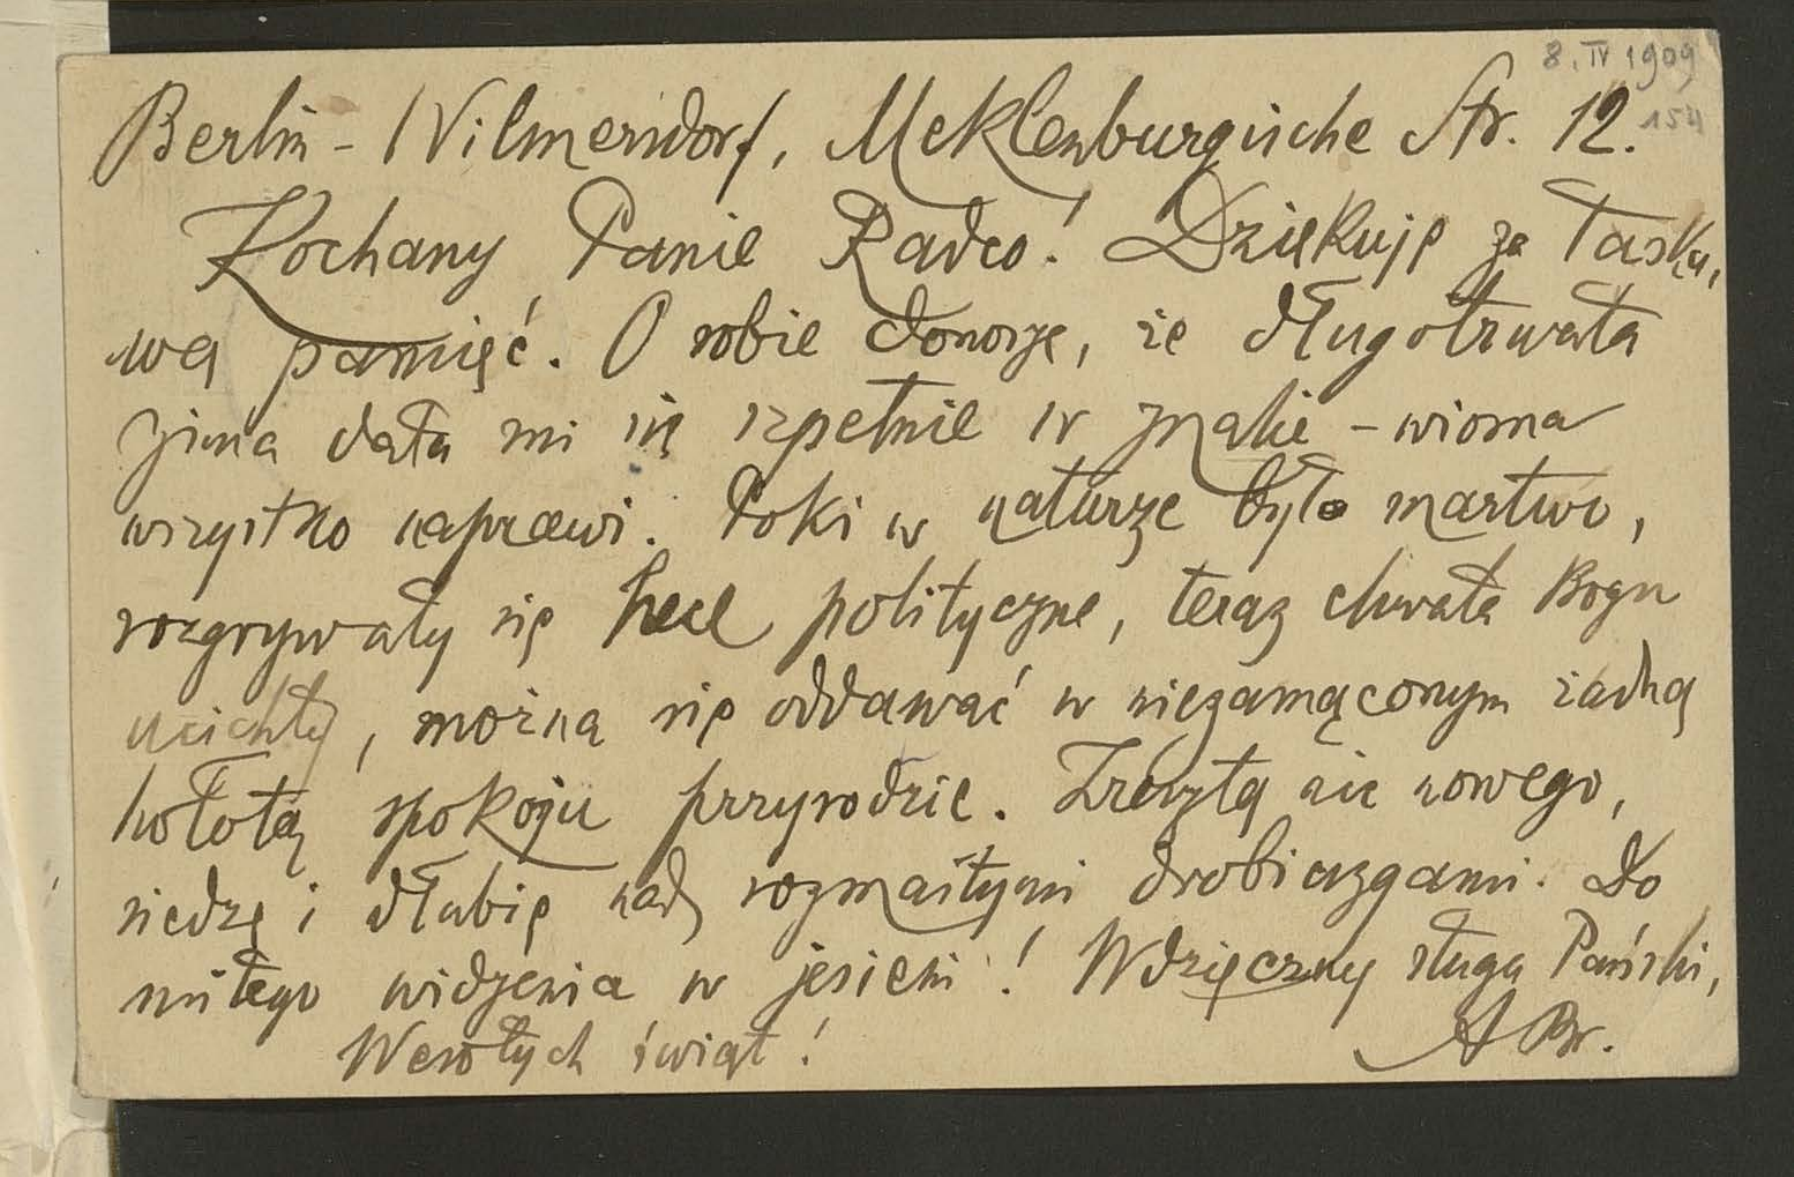 8. IV 1909
154
Berlin - Wilmersdorf, Meklenburgische Str. 12.
Kochany Panie Radco! Dziękuję za łaska,
wą pamięć. O sobie donoszę, że długotrwała
zima dała mi się szpetnie w znaki - wiosna
wszystko naprawi. Póki w naturze było martwo,
rozgrywały się hece polityczne, teraz chwała Bogu
ucichły, można się oddawać w niezamąconym żadną
hołotą spokoju przyrodzie. Zresztą nic nowego,
siedzę i dłubię nad rozmaitymi drobiazgami. Do
miłego widzenia w jesieni! Wdzięczny sługa Pański,
Wesołych świąt! A Br.